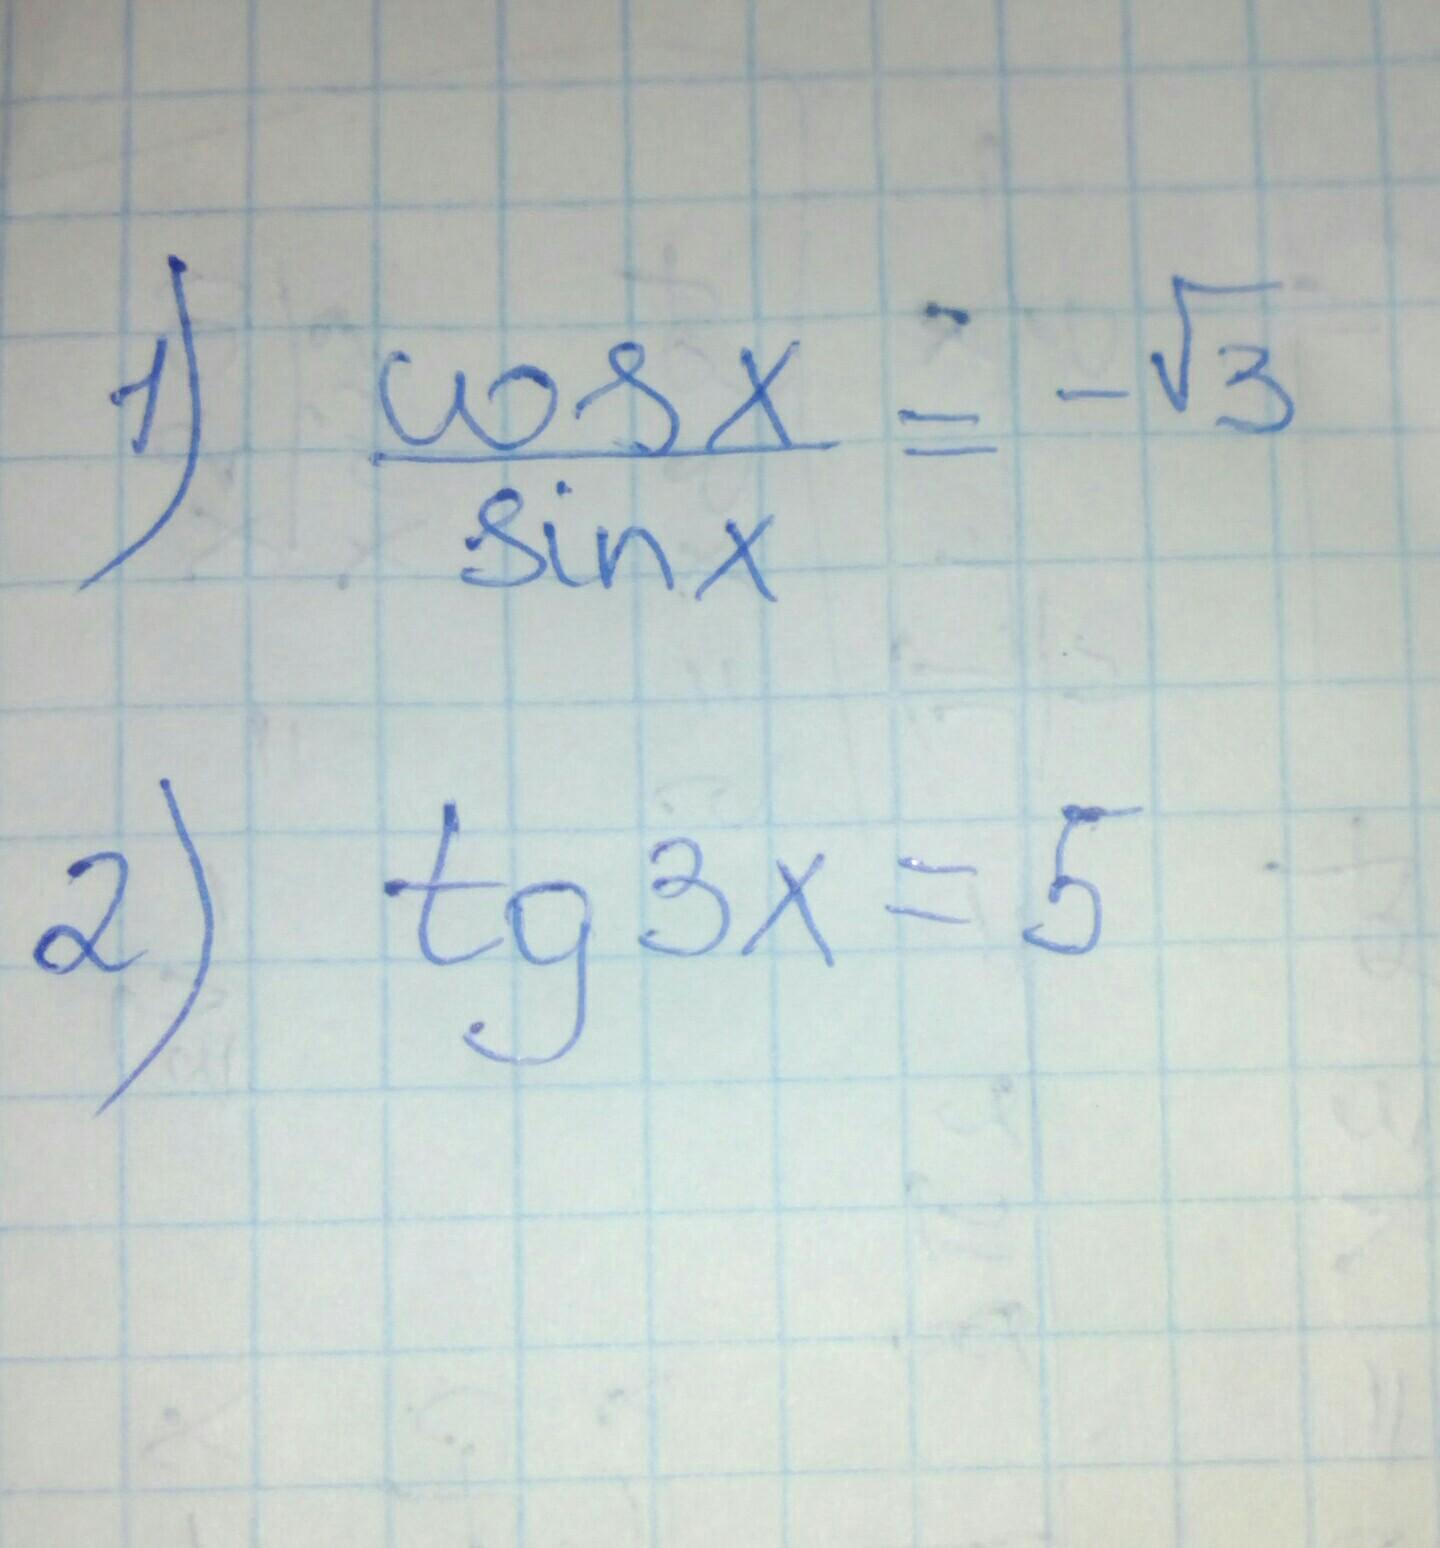 1) cos x / sin x = -√3
2) tg 3x = 5